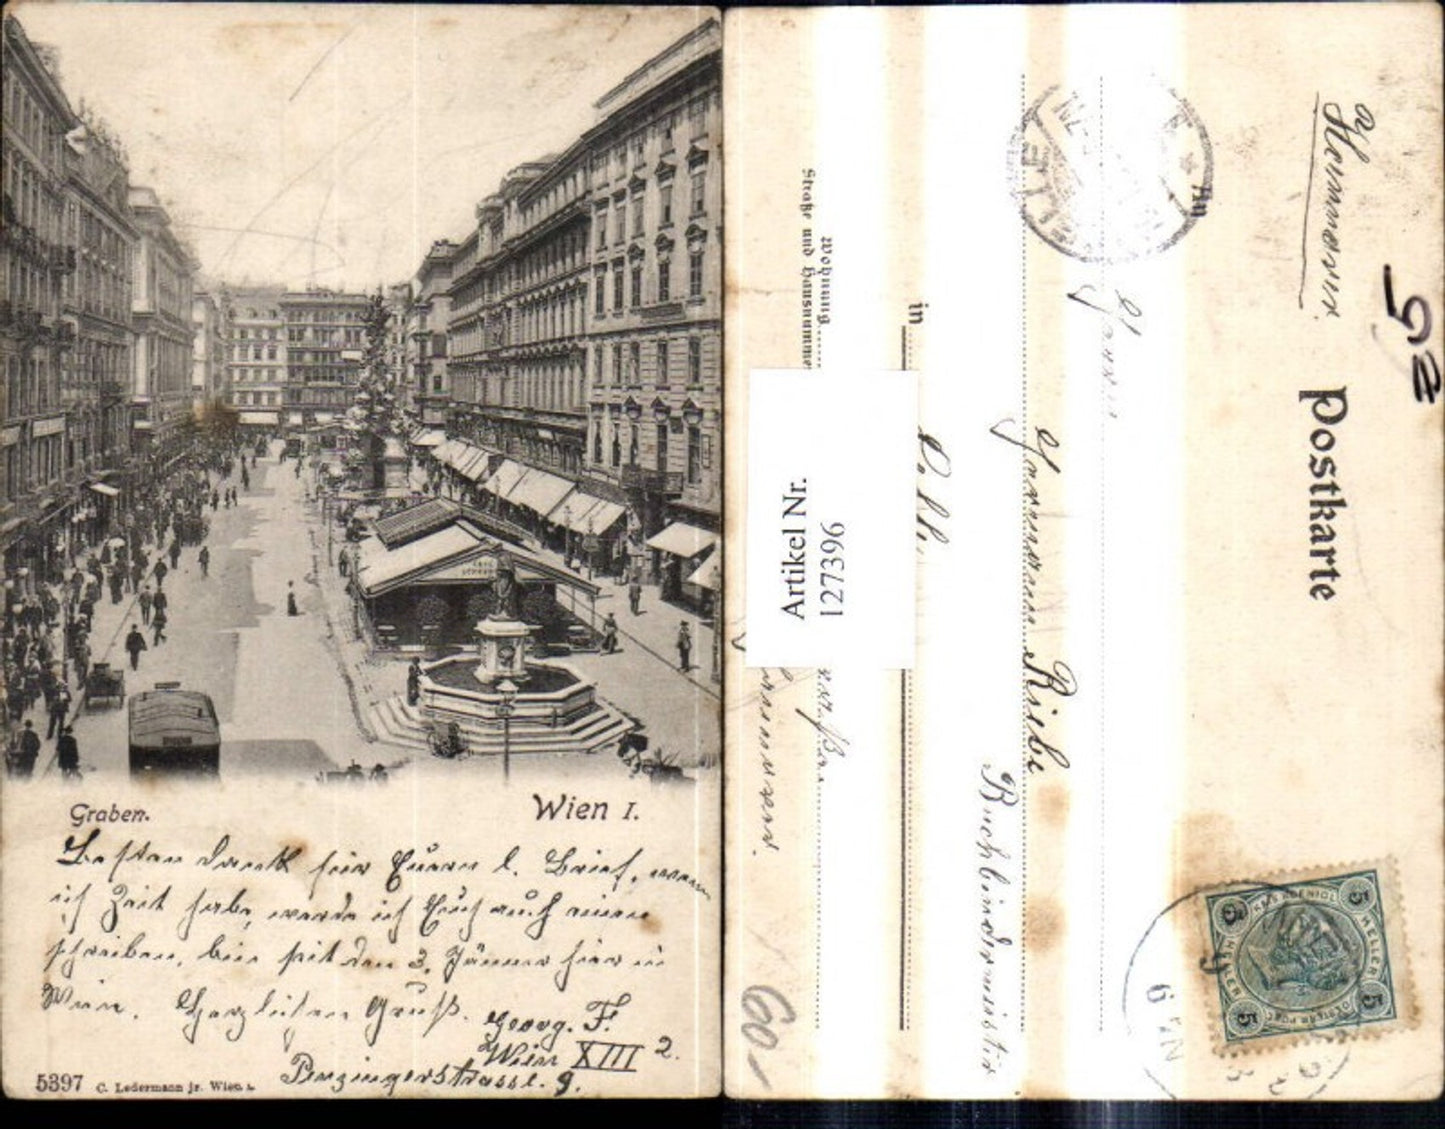 Graben.
Wien I.
Besten Dank für Euren l. Brief, wenn
ich Zeit habe, werde ich Euch auch einen
schreiben, bin seit den 3. Jänner hier in
Wien. Herzlichen Gruß.
Georg. F.
Wien XIII 2.
Penzingerstrasse. 9.
5397 C. Ledermann jr. Wien I.
Postkarte
a/ Hannover.
52
An
Herrn
Hermann Riebe
Buchbindermeister
in
Wohnung
Straße und Hausnummer
Hannover.
60
Artikel Nr.
127396
5 HELLER 5